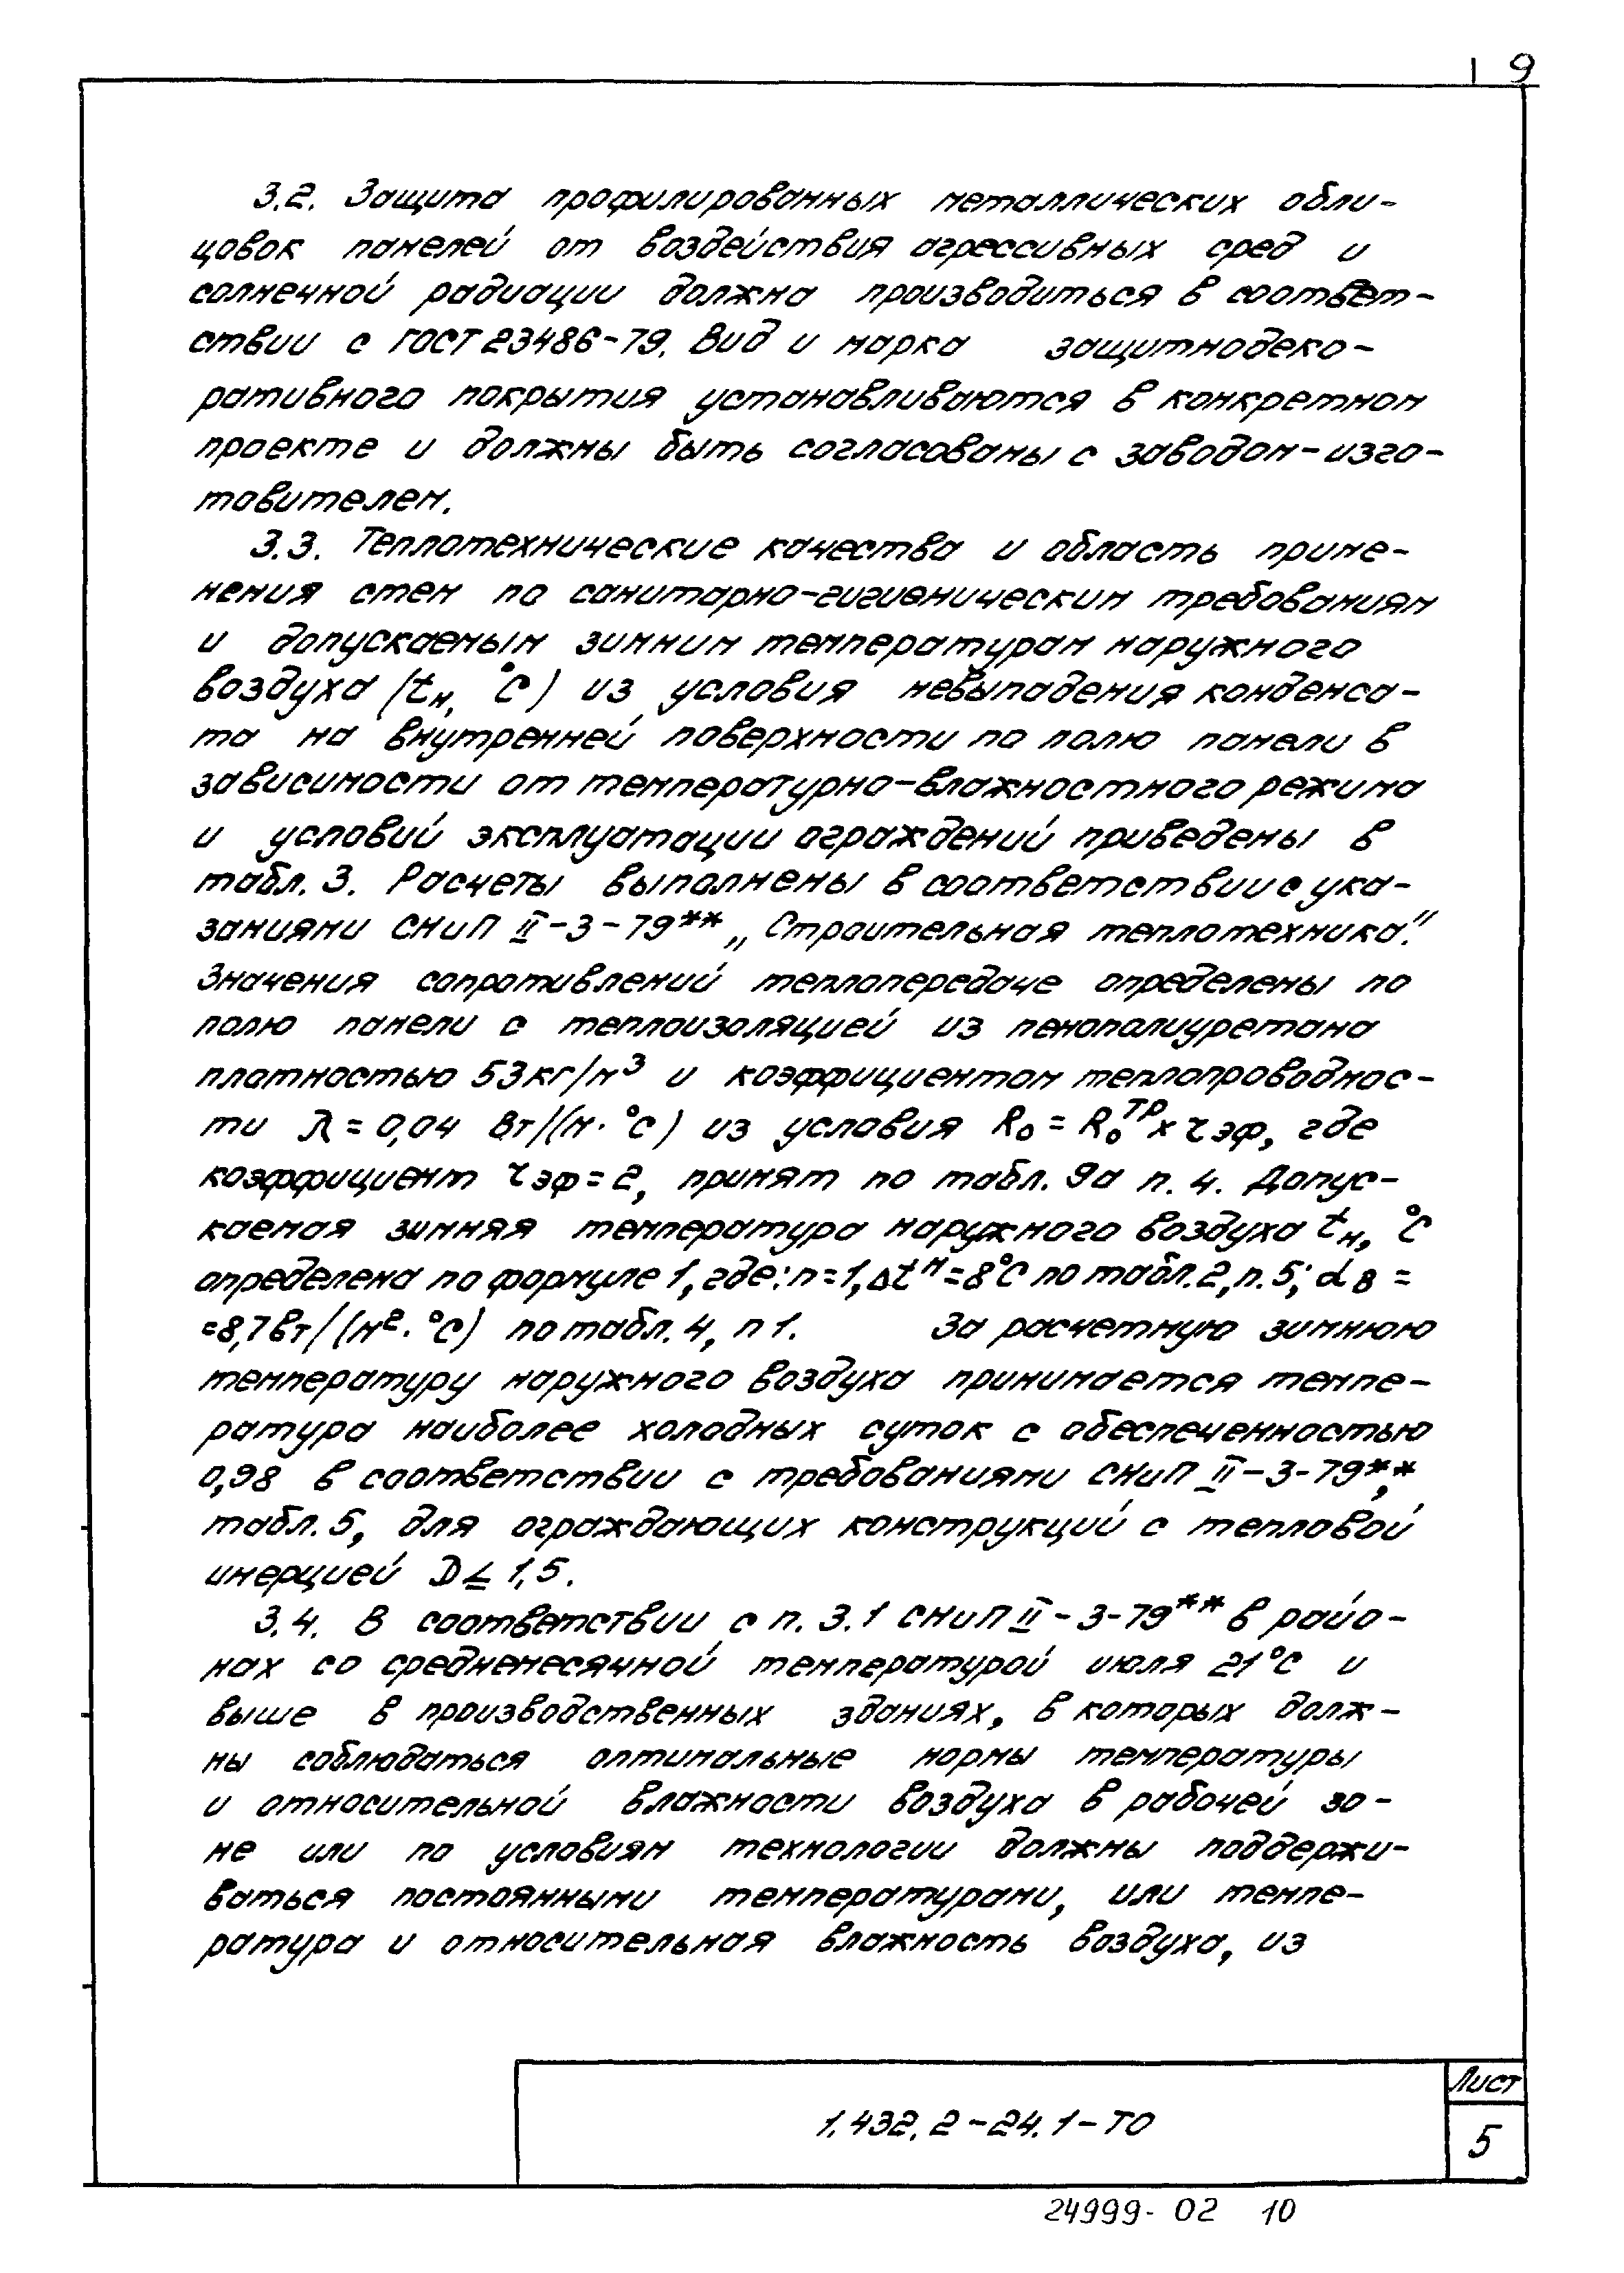 9
3.2. Защита профилированных металлических обли-
цовок панелей от воздействия агрессивных сред и
солнечной радиации должна производиться в соответ-
ствии с ГОСТ 23486-79. Вид и марка защитнодеко-
ративного покрытия устанавливаются в конкретном
проекте и должны быть согласованы с заводом-изго-
товителем.
3.3. Теплотехнические качества и область приме-
нения стен по санитарно-гигиеническим требованиям
и допускаемым зимним температурам наружного
воздуха (tн, °С) из условия невыпадения конденса-
та на внутренней поверхности по полю панели в
зависимости от температурно-влажностного режима
и условий эксплуатации ограждений приведены в
табл. 3. Расчеты выполнены в соответствии с ука-
заниями СНиП II-3-79** „Строительная теплотехника".
Значения сопротивлений теплопередаче определены по
полю панели с теплоизоляцией из пенополиуретана
плотностью 53кг/м³ и коэффициентом теплопроводнос-
ти λ = 0,04 Вт/(м·°С) из условия Rо = Rо ТР х r эф, где
коэффициент r эф = 2, принят по табл. 9а п. 4. Допус-
каемая зимняя температура наружного воздуха tн, °С
определена по формуле 1, где: n=1, Δtн=8°С по табл.2, п. 5; α в =
=8,7 Вт/(м²·°С) по табл. 4, п 1. За расчетную зимнюю
температуру наружного воздуха принимается темпе-
ратура наиболее холодных суток с обеспеченностью
0,98 в соответствии с требованиями СНиП II-3-79**,
табл. 5, для ограждающих конструкций с тепловой
инерцией D ≤ 1,5.
3.4. В соответствии с п. 3.1 СНиП II-3-79** в райо-
нах со среднемесячной температурой июля 21°С и
выше в производственных зданиях, в которых долж-
ны соблюдаться оптимальные нормы температуры
и относительной влажности воздуха в рабочей зо-
не или по условиям технологии должны поддержи-
ваться постоянными температурами, или темпе-
ратура и относительная влажность воздуха, из
1.432.2-24.1-ТО
Лист
5
24999-02 10